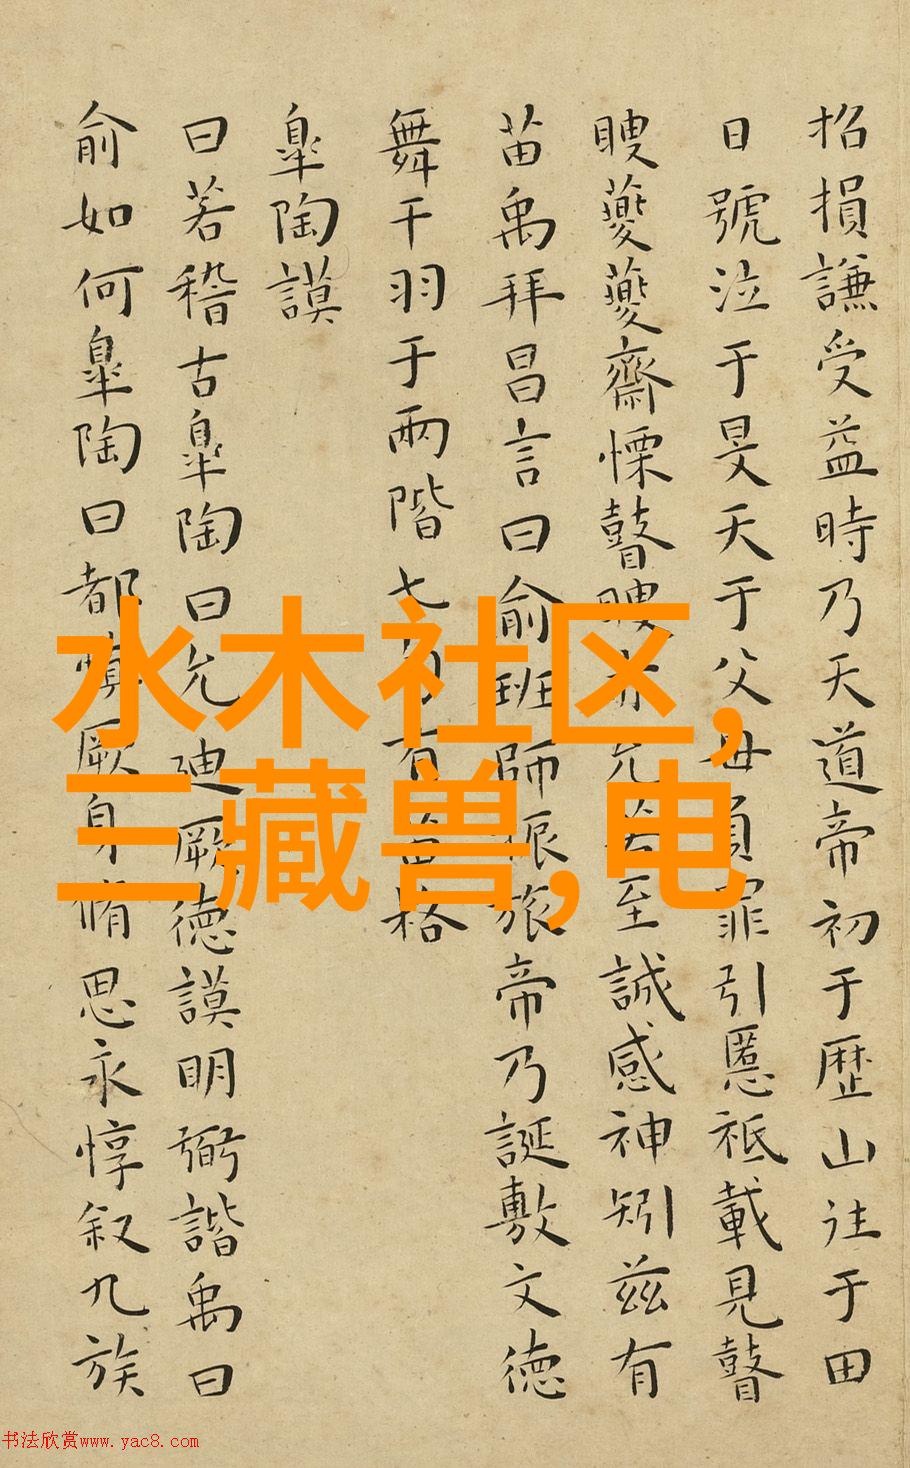 招損謙受益時乃天道帝初于歴山往于田
日號泣于旻天于父母負罪引慝祗載見瞽
瞍夔夔齋慄瞽瞍亦允若至誠感神矧兹有
苗禹拜昌言曰俞班師振旅帝乃誕敷文德
舞干羽于兩階七旬有苗格
皐陶謨
曰若稽古皐陶曰允迪厥德謨明弼諧禹曰
俞如何皐陶曰都慎厥身脩思永惇叙九族
水木社区,
三藏兽,电
书法欣赏www.yac8.com